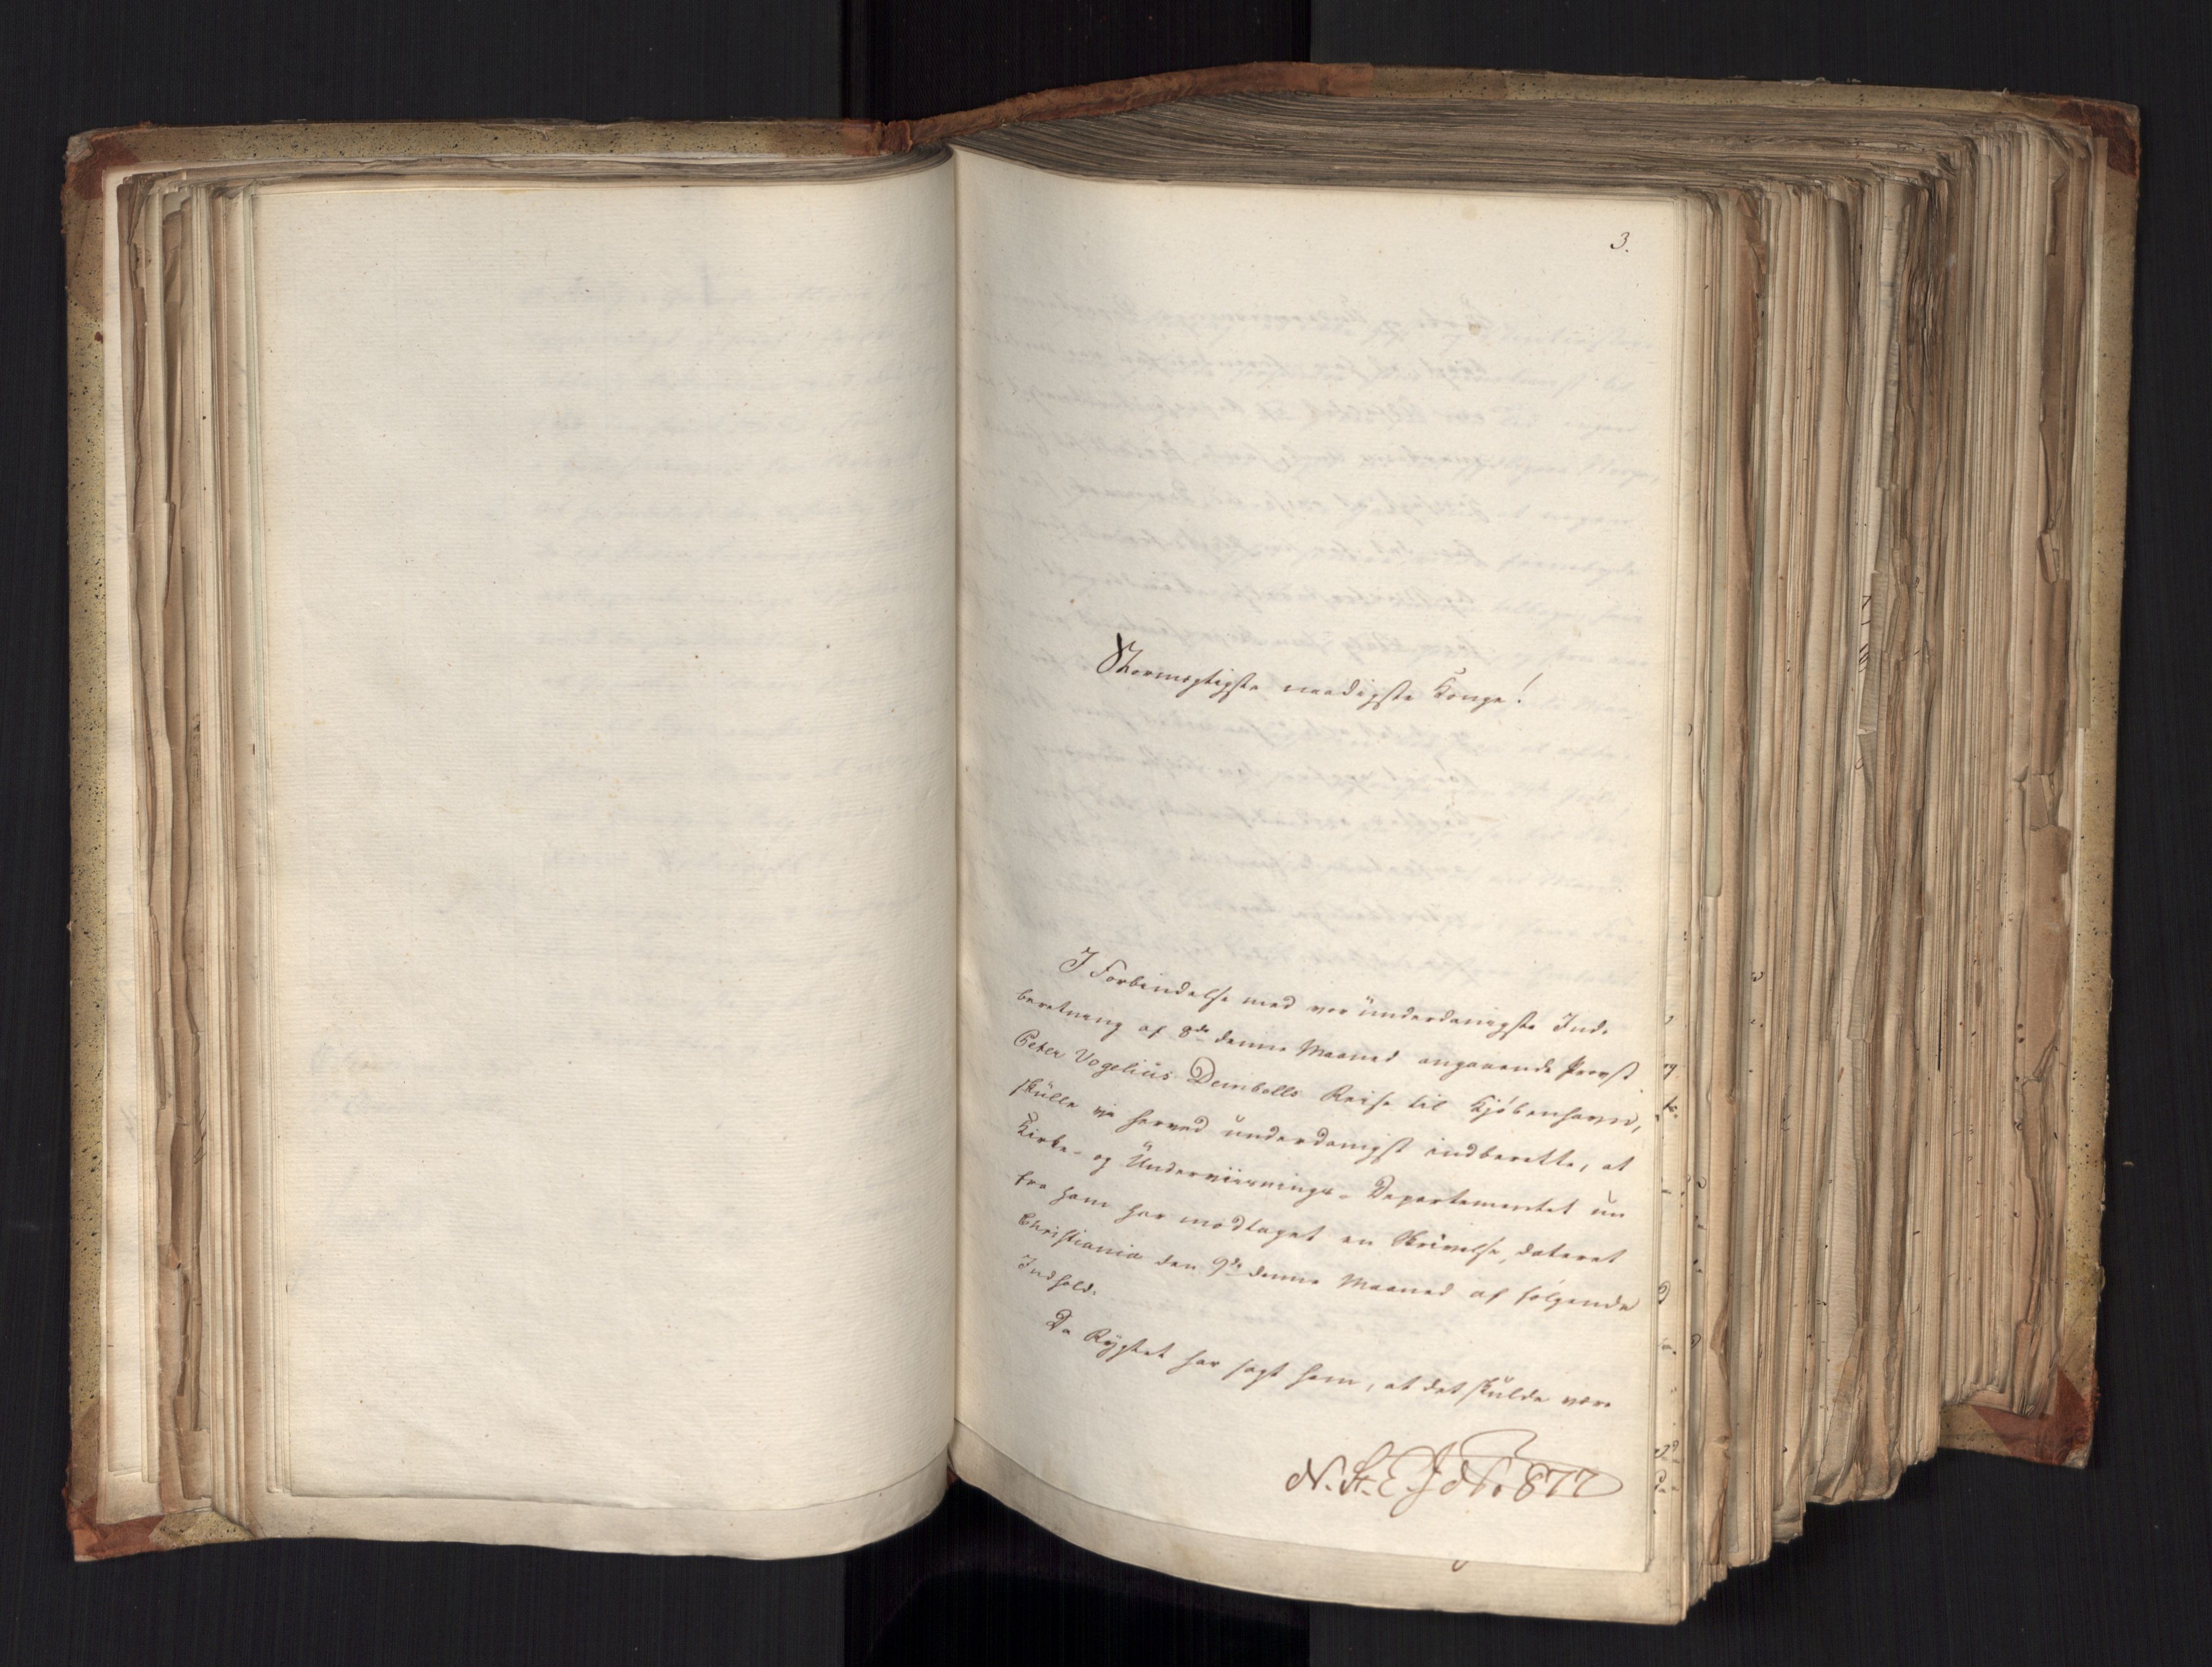 3.
Stormægtigste naadigste Konge!
I Forbindelse med vor underdanigste Ind-
beretning af 8de denne Maaned angaaende Provst
Peter Vogelius Deinbolls Reise til Kjøbenhavn,
skulle vi herved underdanigst indberette, at
Kirke- og Underviisnings-Departementet nu
fra ham har modtaget en Skrivelse, dateret
Christiania den 9de denne Maaned af følgende
Indhold.
Da Rygtet har sagt ham, at det skulde være
N. St. E. J. No. 877